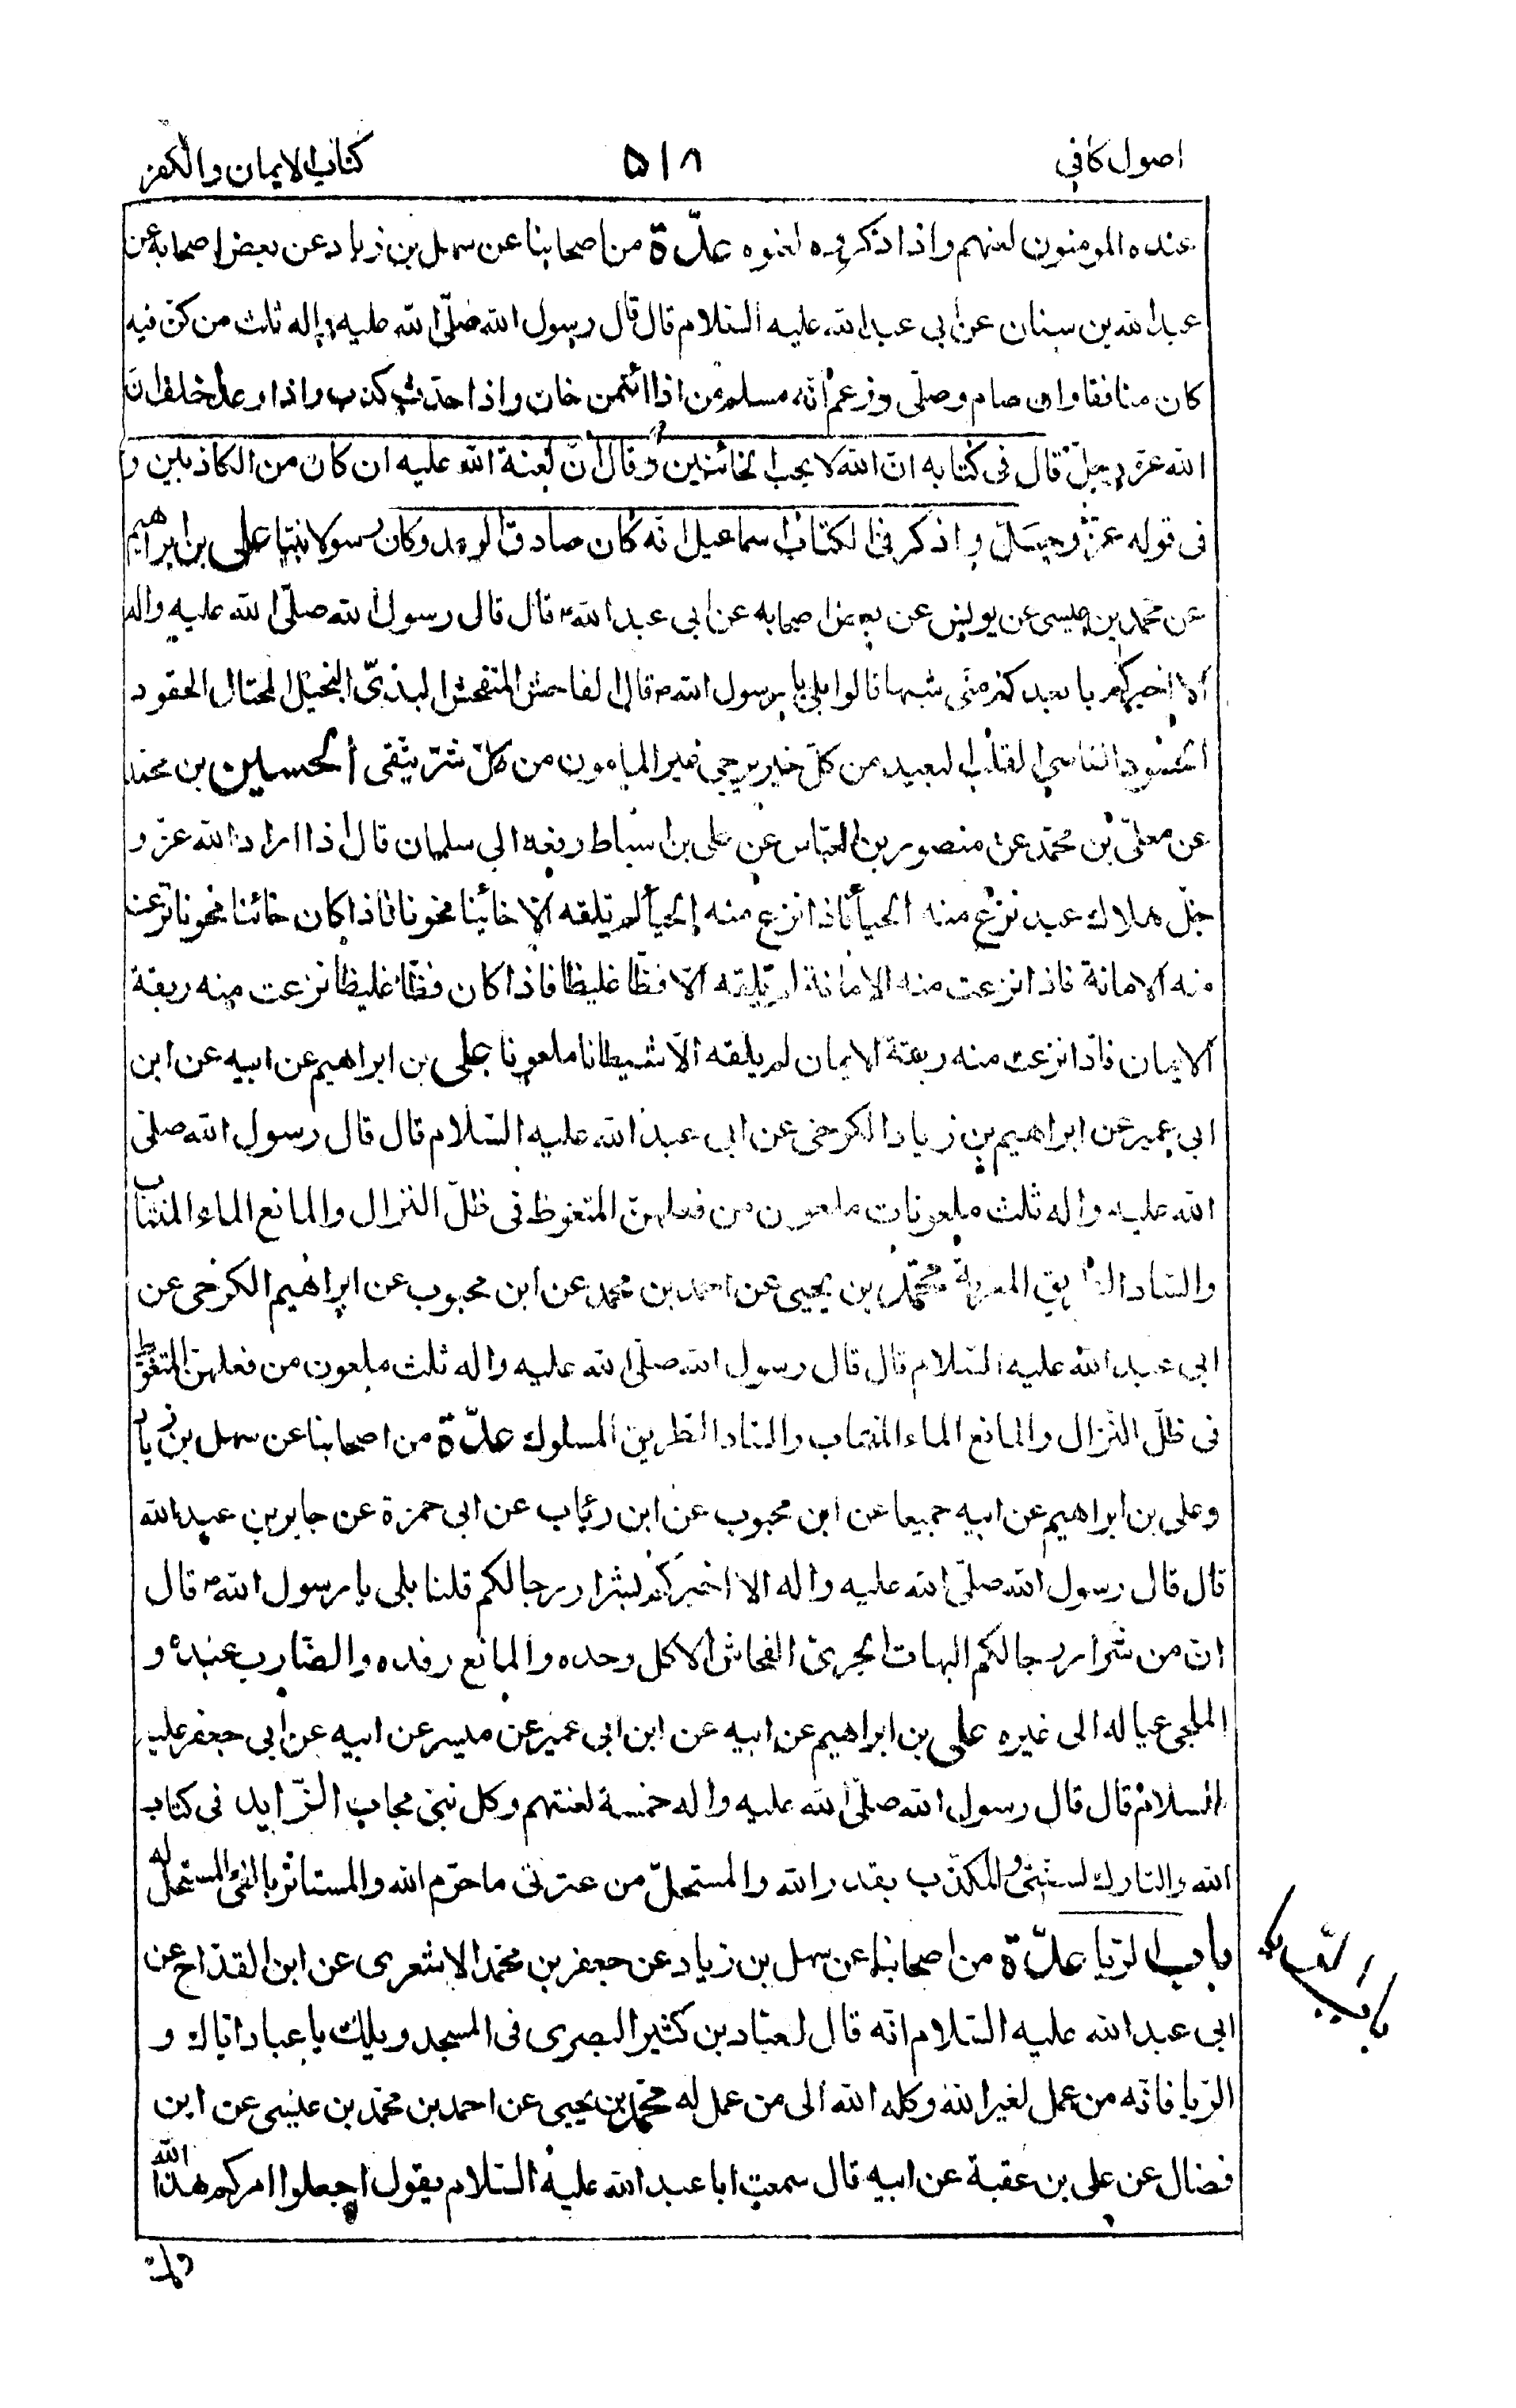 اصول كافي
۵۱۸
كتاب الايمان والكفر
عنده المومنون لعنهم واذا ذكروه لعنوه عدّة من اصحابنا عن سهل بن زياد عن بعض اصحابه عن
عبد الله بن سنان عن ابي عبد الله عليه السّلام قال قال رسول الله صلّى الله عليه واله ثلث من كنّ فيه
كان منافقا وان صام وصلّى وزعم انّه مسلم من اذا ائتمن خان واذا حدّث كذب واذا وعد اخلف انّ
الله عزّ وجلّ قال فى كتابه انّ الله لا يحب الخائنين وقال انّ لعنة الله عليه ان كان من الكاذبين و
فى قوله عزّ وجلّ واذكر فى الكتاب اسماعيل انّه كان صادق الوعد وكان رسولا نبيّا على بن ابراهيم
عن محمّد بن عيسى عن يونس عن بعض اصحابه عن ابى عبد الله ع قال قال رسول الله صلّى الله عليه واله
الا اخبركم بابعدكم منّى شبها قالوا بلى يا رسول الله ص قال الفاحش المتفحّش البذىّ البخيل المختال الحقود
الحسود القاسى القلب البعيد من كلّ خير يرجى غير المامون من كلّ شرّ يتّقى الحسين بن محمّد
عن معلّى بن محمّد عن منصور بن العبّاس عن على بن اسباط رفعه الى سلمان قال اذا اراد الله عزّ و
جلّ هلاك عبد نزع منه الحيأ فاذا نزع منه الحيأ لم تلقه الّا خائنا مخونا فاذا كان خائنا مخونا نزعت
منه الامانة فاذا نزعت منه الامانة لم تلقه الّا فظّا غليظا فاذا كان فظّا غليظا نزعت منه ربقة
الايمان فاذا نزعت منه ربقة الايمان لم يلقه الّا شيطانا ملعونا على بن ابراهيم عن ابيه عن ابن
ابى عمير عن ابراهيم بن زياد الكرخى عن ابى عبد الله عليه السّلام قال قال رسول الله صلّى
الله عليه واله ثلث ملعونات ملعون من فعلهنّ المتغوّط فى ظلّ النّزال والمانع الماء المنتاب
والسّاد الطّريق المعربة محمّد بن يحيى عن احمد بن محمد عن ابن محبوب عن ابراهيم الكرخى عن
ابى عبد الله عليه السّلام قال قال رسول الله صلّى الله عليه واله ثلث ملعون من فعلهنّ المتغوّط
فى ظلّ النّزال والمانع الماء المنتاب والساد الطّريق المسلوك عدّة من اصحابنا عن سهل بن زياد
وعلى بن ابراهيم عن ابيه جميعا عن ابن محبوب عن ابن رئاب عن ابى حمزة عن جابر بن عبد الله
قال قال رسول الله صلّى الله عليه واله الا اخبركم بشرار رجالكم قلنا بلى يا رسول الله ص قال
انّ من شرار رجالكم البهات الجرئ الفحاش الاكل وحده والمانع رفده والضّارب عبده و
الملجئ عياله الى غيره على بن ابراهيم عن ابيه عن ابن ابى عمير عن ميسر عن ابيه عن ابى جعفر عليه
السلام قال قال رسول الله صلّى الله عليه واله خمسة لعنتهم وكل نبىّ مجاب الزّايد فى كتاب
الله والتارك لسنّتى والمكذّب بقدر الله والمستحلّ من عترتى ما حرّم الله والمستاثر بالفئ المستحلّ له
باب الرّيا عدّة من اصحابنا عن سهل بن زياد عن جعفر بن محمّد الاشعرى عن ابن القدّاح عن
باب الرّيا
ابى عبد الله عليه السّلام انّه قال لعبّاد بن كثير البصرى فى المسجد ويلك يا عباد ايّاك و
الرّيا فانّه من عمل لغير الله وكله الله الى من عمل له محمّد بن يحيى عن احمد بن محمّد بن عيسى عن ابن
فضال عن على بن عقبة عن ابيه قال سمعت ابا عبد الله عليه السّلام يقول اجعلوا امركم هذا لله